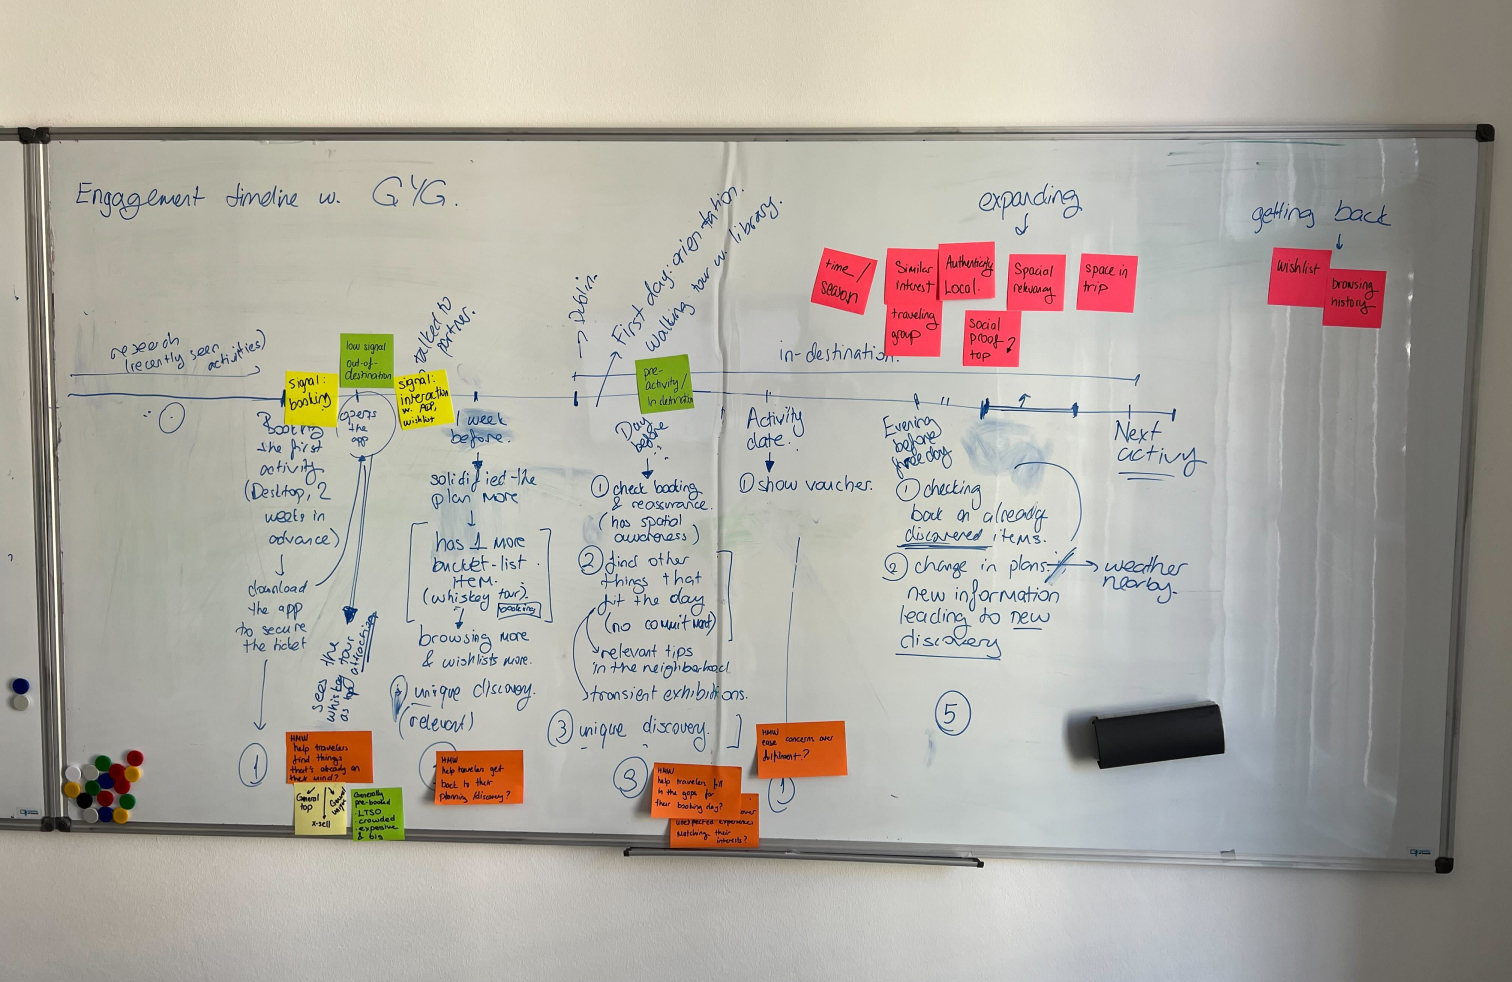 Engagement timeline w. GYG.
research
(recently seen
activities)
Signal:
booking
low signal
out-of-
destination
opens
the
app
talked to
partner.
signal:
interaction
wishlist
Booking
the first
activity
(Desktop, 2
weeks in
advance)
download
the app
to secure
the ticket
sees the
whiskey tour
as top attraction
1
HMW
help travelers
find things
that's already on
their mind?
General
top
x-sell
Generally
pre-booked
LTSO
crowded
expensive
& big
1 week
before.
solidified the
plan more
has 1 more
bucket-list
item.
(whiskey tour).
booking
browsing more
& wishlists more.
unique discovery.
(relevant)
HMW
help travelers get
back to their
planning/discovery?
→ Dublin.
First day: orientation.
walking tour w. library.
pre-
activity/
in destination
Day
before
1 check booking
& reassurance.
(has spatial
awareness)
2 find other
things that
fit the day
(no commitment)
relevant tips
in the neighborhood
transient exhibitions.
3 unique discovery.
3
HMW
help travelers fill
in the gaps for
their booking day?
unexpected experiences
matching their
interests?
in-destination.
Activity
date.
1 show voucher.
HMW
ease concerns over
fulfilment?
Evening
before
free day
1 checking
back on already
discovered items.
2 change in plans → weather
nearby.
new information
leading to new
discovery
5
Next
activy
expanding
time/
season
Similar
interest
Authenticity
Local.
Spacial
relevancy
space in
trip
traveling
group
Social
proof?
top
getting back
wishlist
browsing
history